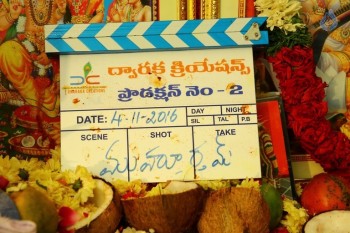 ద్వారక క్రియేషన్స్
DWARAKA CREATIONS
ప్రొడక్షన్ నెం - 2
DATE: 4-11-2016 DAY NIGHT
SIL TAL P.B
SCENE SHOT TAKE
ముహూర్తమ్